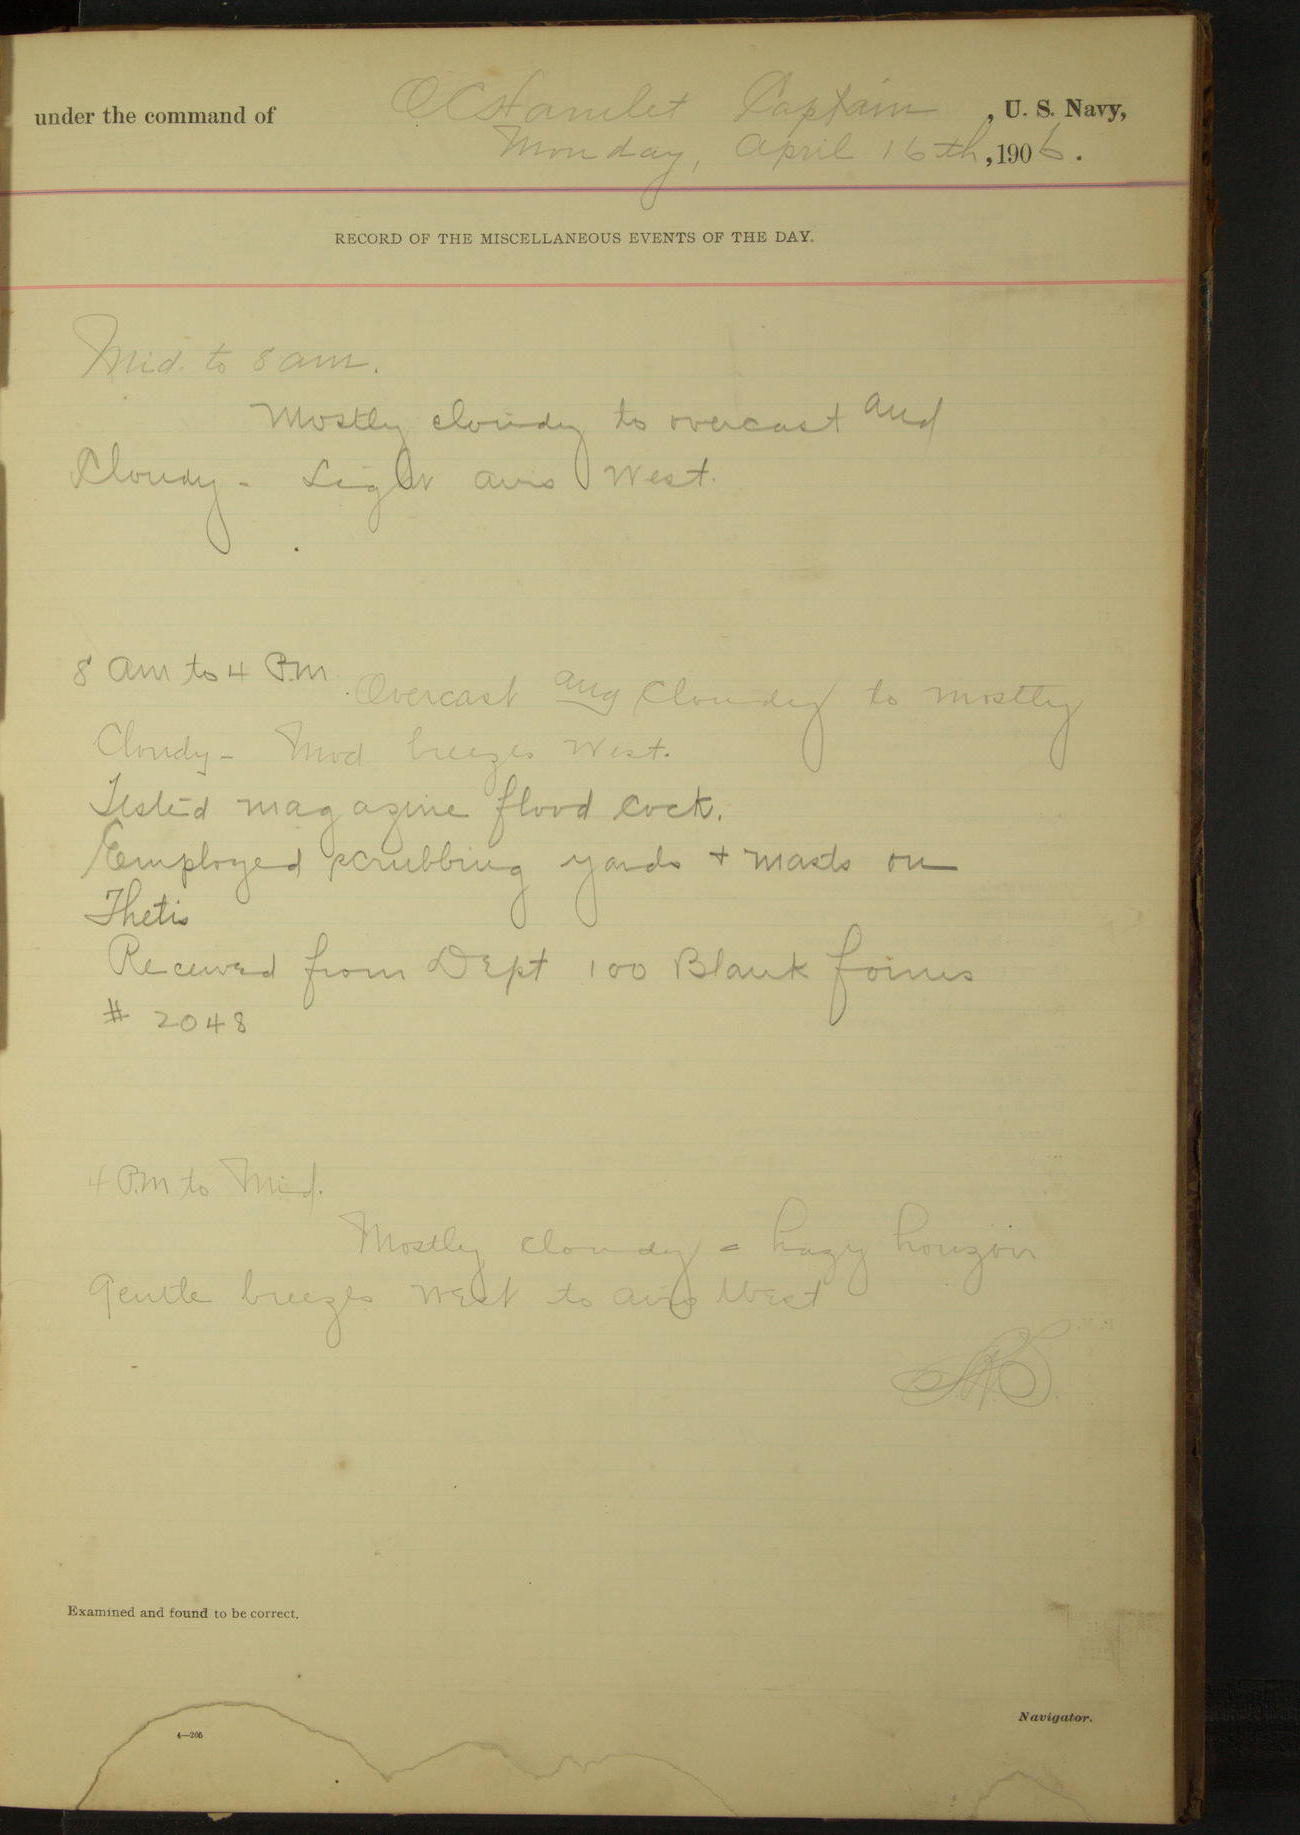 under the command of O C Hamlet Captain, U. S. Navy,
Monday, April 16th, 1906.
RECORD OF THE MISCELLANEOUS EVENTS OF THE DAY.
Mid. to 8 am.
Mostly cloudy to overcast and
Cloudy - Light airs West.
8 am to 4 P.m.
Overcast and Cloudy to mostly
Cloudy - Mod breezes West.
Tested magazine flood cock.
Employed scrubbing yards + masts on
Thetis
Received from Dept 100 Blank forms
# 2048
4 P.m to Mid.
Mostly cloudy = hazy horizon
Gentle breezes West to airs West
Examined and found to be correct.
4—205
Navigator.